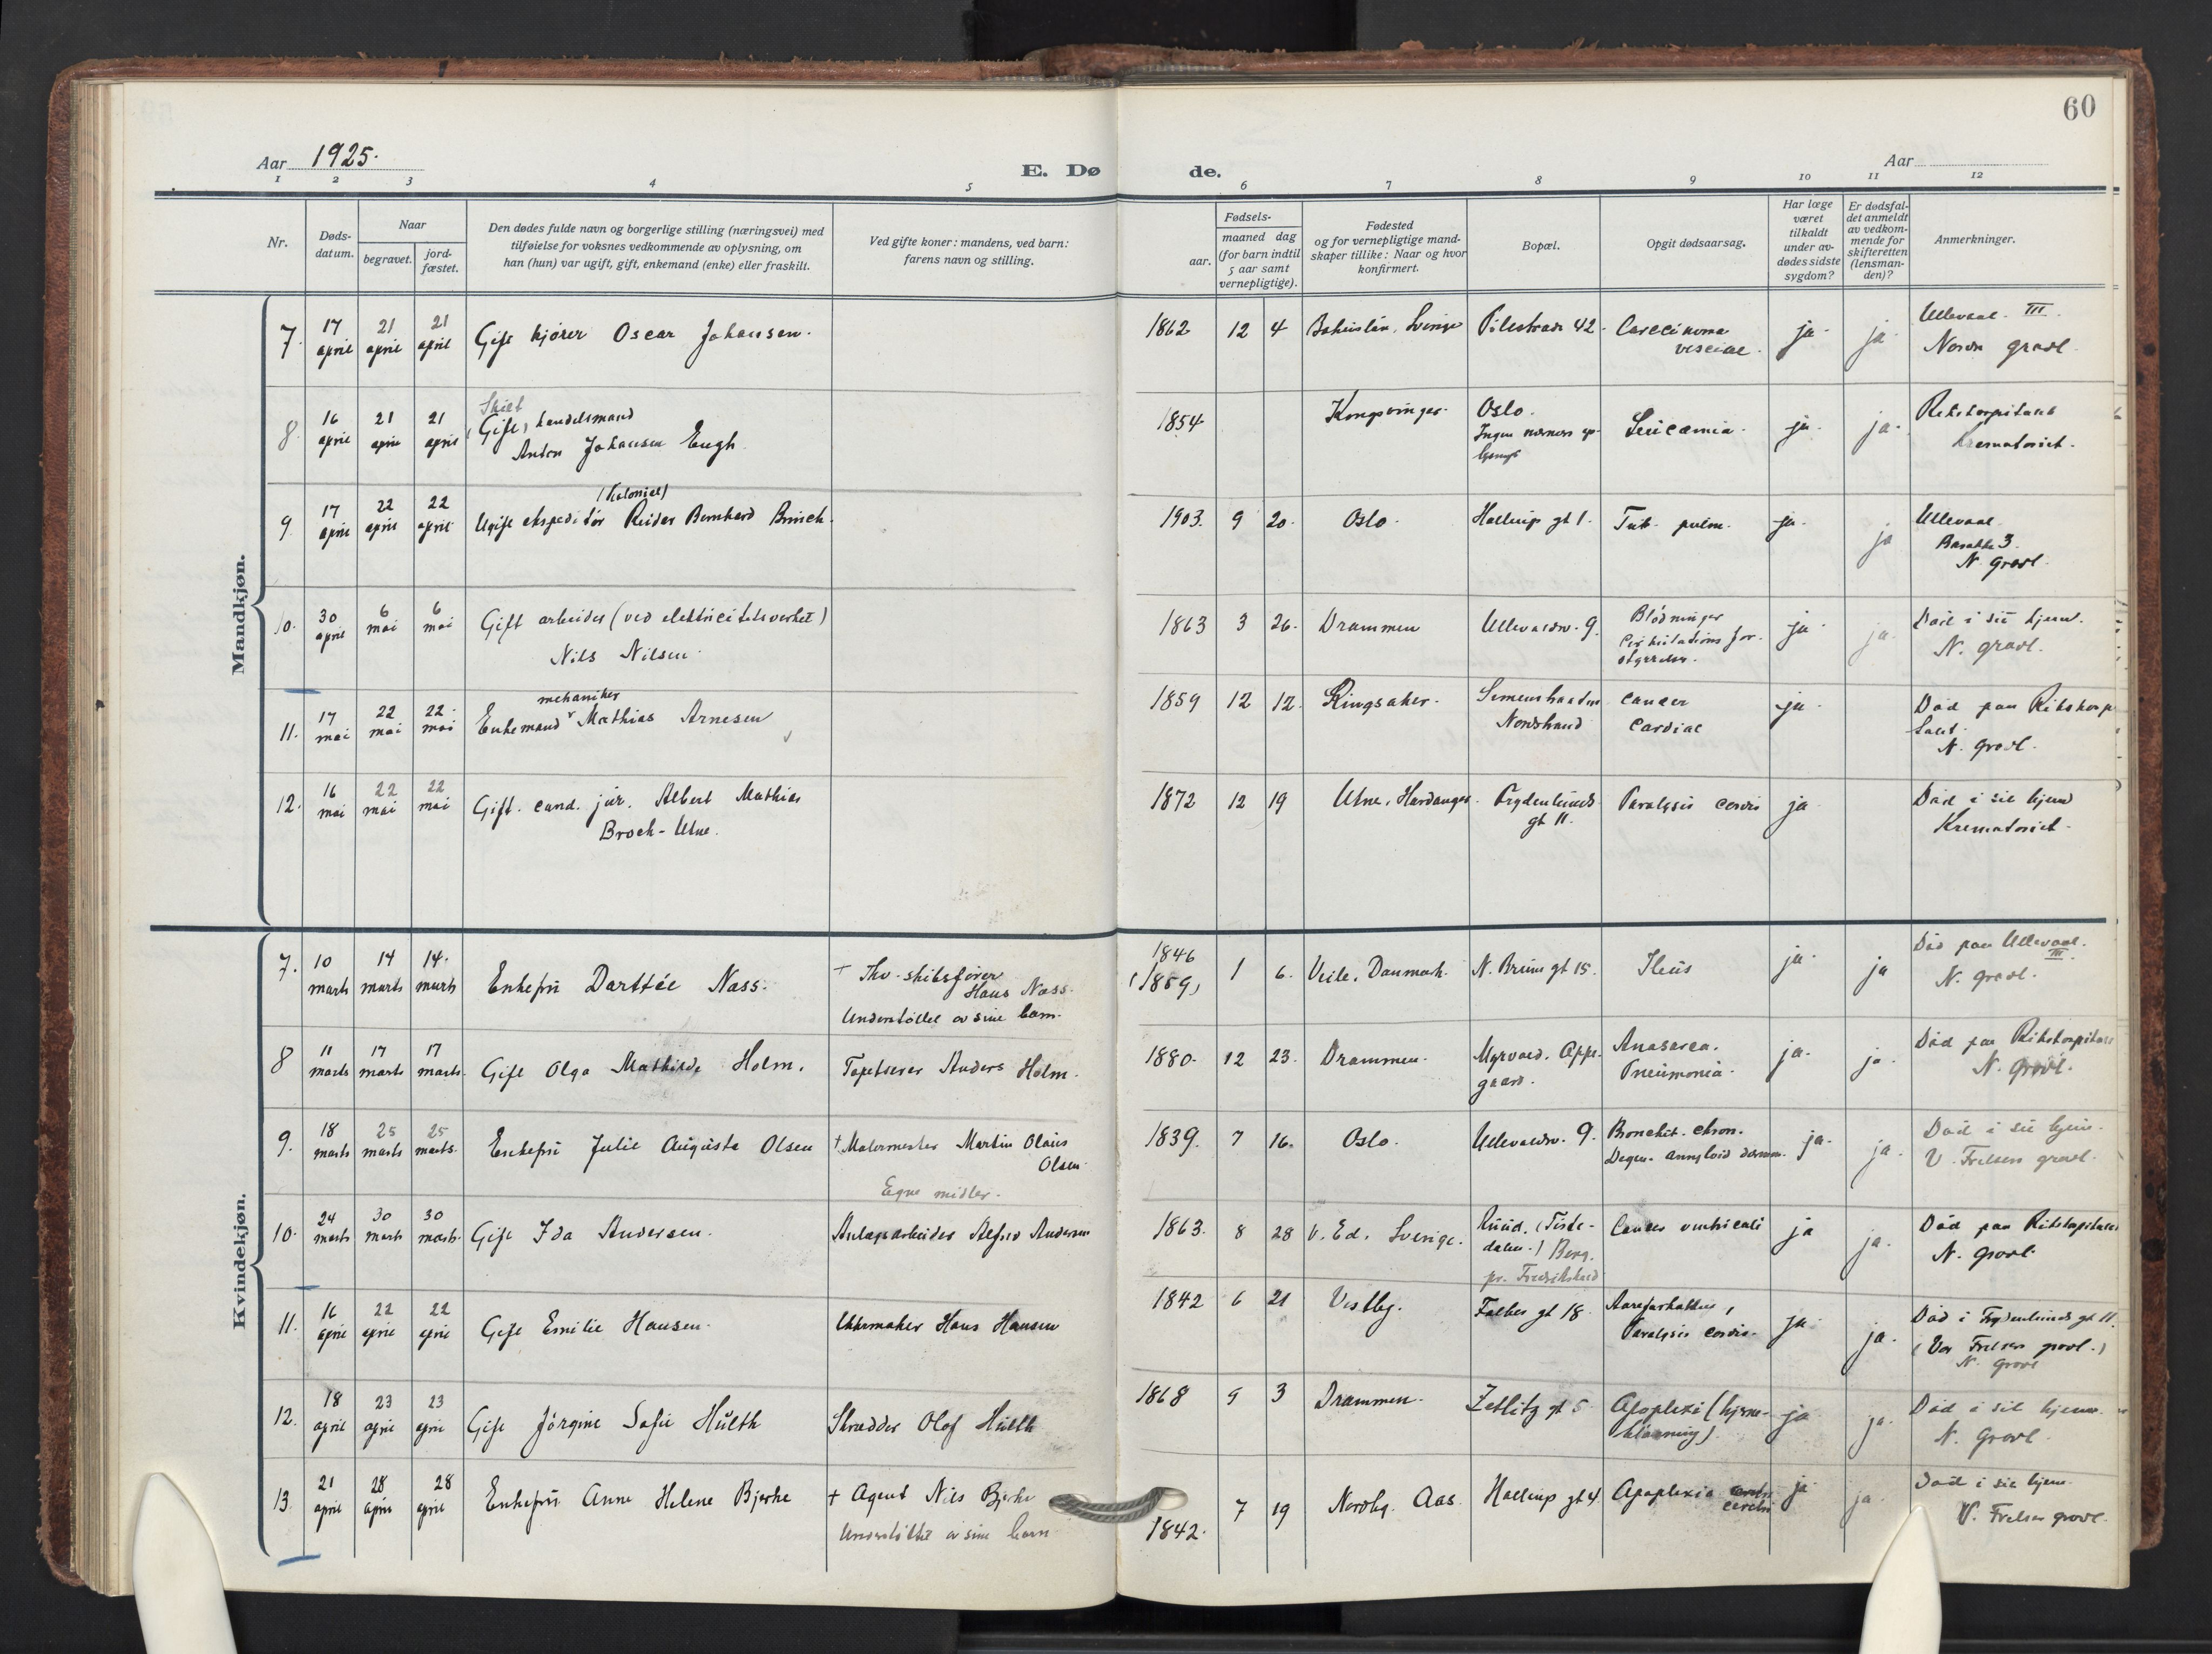 60
Aar 1925.
E. Dø de.
Aar
1 2 3 4 5 6 7 8 9 10 11 12
Nr.
Døds-
datum.
Naar
begravet.
jord-
fæstet.
Den dødes fulde navn og borgerlige stilling (næringsvei) med
tilføielse for voksnes vedkommende av oplysning, om
han (hun) var ugift, gift, enkemand (enke) eller fraskilt.
Ved gifte koner: mandens, ved barn:
farens navn og stilling.
Fødsels-
aar.
maaned dag
(for barn indtil
5 aar samt
vernepligtige).
Fødested
og for vernepligtige mand-
skaper tillike: Naar og hvor
konfirmert.
Bopæl.
Opgit dødsaarsag.
Har læge
været
tilkaldt
under av-
dødes sidste
sygdom?
Er dødsfal-
det anmeldt
av vedkom-
mende for
skifteretten
(lensman-
den)?
Anmerkninger.
Mandkjøn.
7. 17 april 21 april 21 april Gift kjører Oscar Johansen. 1862 12 4 Bohuslän, Sverige Pilestræde 42. Carcinoma
vesicae. ja. ja. Ullevaal. III.
Nordre gravl.
8. 16 april 21 april 21 april Skilt
(Gift) handelsmand
Anton Johansen Engh. 1854 Kongsvinger. Oslo.
Ingen nærmere op-
Leucæmia. ja. ja. Rikshospitalet
Krematoriet.
9. 17 april 22 april 22 april (kolonial)
Ugift ekspeditør Reidar Bernhard Brinch. 1903. 9 20. Oslo. Hallings gt 1. Tub. pulm. ja. ja Ullevaal.
Barakke 3.
N. gravl.
10. 30 april 6 mai 6 mai Gift arbeider (ved elektricitetsverket)
Nils Nilsen. 1863 3 26. Drammen Ullevaldsv. 9. Blødninger
Cirkulations for-
styrrelser. ja. ja. Død i sit hjem.
N. gravl.
11. 17 mai 22 mai 22. mai mekaniker
Enkemand Mathias Arnesen 1859 12 12. Ringsaker. Simenstraaden
Nordstrand cancer
cardiae ja. Død paa Rikshospi
talet.
N. gravl.
12. 16 mai 22 mai 22 mai Gift. cand. jur. Albert Mathias
Broch-Utne. 1872 12 19 Utne, Hardanger. Frydenlunds
gt 11. Paralysis cordis ja Død i sit hjem
Krematoriet.
Kvindekjøn.
7. 10 marts 14 marts 14. marts Enkefru Darttée Nass. † Fhv. skibsfører
Hans Nass.
Understøttet av sine barn. 1846
(1859) 1 6. Veile, Danmark. N. Bruns gt 15. Ileus ja. ja Død paa Ullevaal.
III.
N. gravl.
8 11 marts 17 marts 17 marts. Gift Olga Mathilde Holm. Tapetserer Anders Holm. 1880. 12 23. Drammen. Myrvold. Oppe-
gaard. Anasarca.
Pneumonia. ja. ja. Død paa Rikshospitalet
N. gravl.
9. 18 marts 25 marts 25 marts. Enkefru Julie Augusta Olsen † Malermester Martin Olaus
Olsen.
Egne midler. 1839. 7 16. Oslo. Ullevaldsv. 9. Bronchit. chron.
Degen. amyloid ja. ja. Død i sit hjem.
V. Frelsers gravl.
10. 24 marts 30 marts 30 marts. Gift Ida Andersen. Anlægsarbeider Alfred Andersen 1863. 8 28 V. Ed, Sverige. Ruud. (Tiste-
dalen.) Berg.
pr. Fredrikshald Cancer ventriculi ja ja. Død paa Rikshospitalet
N. gravl.
11. 16 april 22 april 22 april Gift Emilie Hansen. Uhrmaker Hans Hansen 1842 6 21 Vestby. Falbes gt 18. Aareforkalkn,
Paralysis cordis. ja. ja. Død i Frydenlunds gt 11.
(Vor Frelsers gravl.)
N. gravl
12. 18 april 23 april 23 april Gift Jørgine Sofie Hulth Skrædder Olof Hulth 1868 9 3 Drammen. Zetlitz gt 5 Apoplexi (hjerne-
blødning) ja ja. Død i sit hjem.
N. Gravl.
13. 21 april 28 april 28 april Enkefru Anne Helene Bjerke † Agent Nils Bjerke
Understøttet av sine barn 1842. 7 19 Nordby. Aas. Hallings gt 4 Apoplexia
cerebri ja ja. Død i sit hjem.
V. Frelsers gravl.